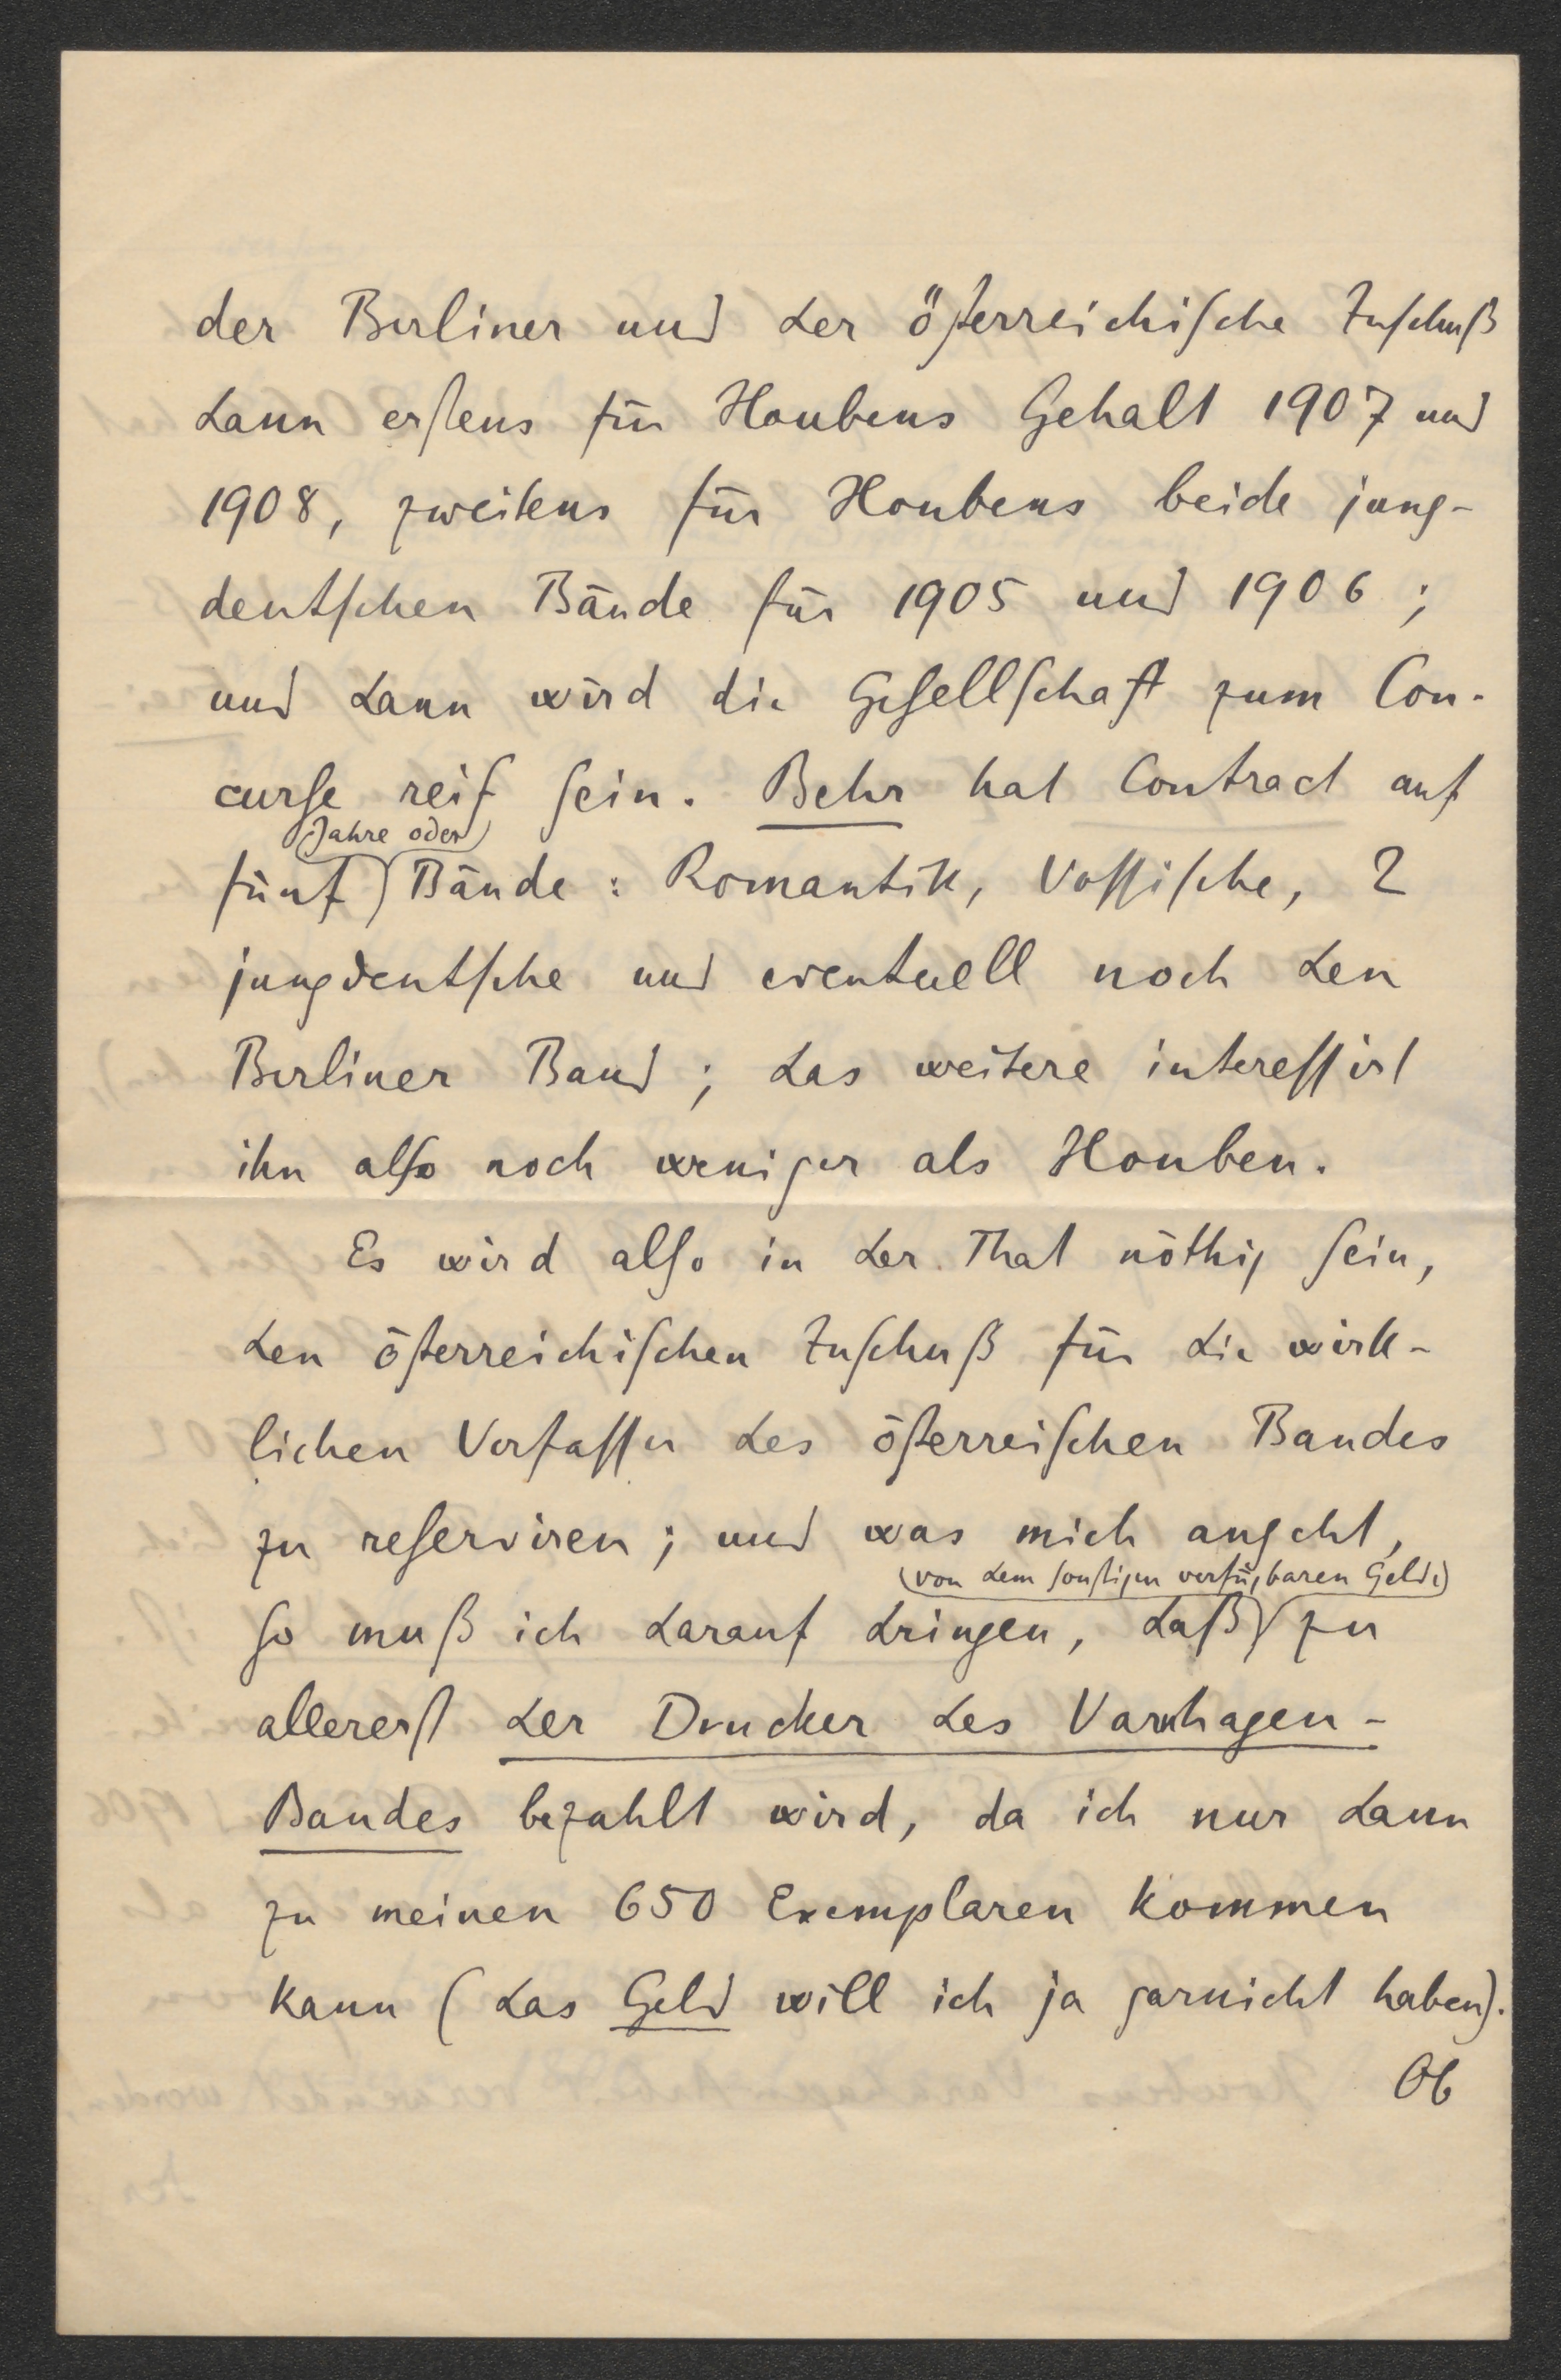 der Berliner und der österreichische Zuschuß
dann erstens für Houbens Gehalt 1907 und
1908, zweitens für Houbens beide jung-
deutschen Bände für 1905 und 1906;
und dann wird die Gesellschaft zum Con-
curse reif sein. Behr hat Contract auf
Jahre oder
fünf Bände: Romantik, Vossische, 2
jungdeutsche und eventuell noch den
Berliner Band; das weitere interessirt
ihn also noch weniger als Houben.
Es wird also in der That nöthig sein,
den österreichischen Zuschuß für die wirk-
lichen Verfasser des österreischen Bandes
zu reserviren; und was mich angeht,
(von dem sonstigen verfügbaren Gelde)
so muß ich darauf dringen, daß zu
allererst der Drucker des Varnhagen-
Bandes bezahlt wird, da ich nur dann
zu meinen 650 Exemplaren kommen
kann (das Geld will ich ja garnicht haben).
Ob